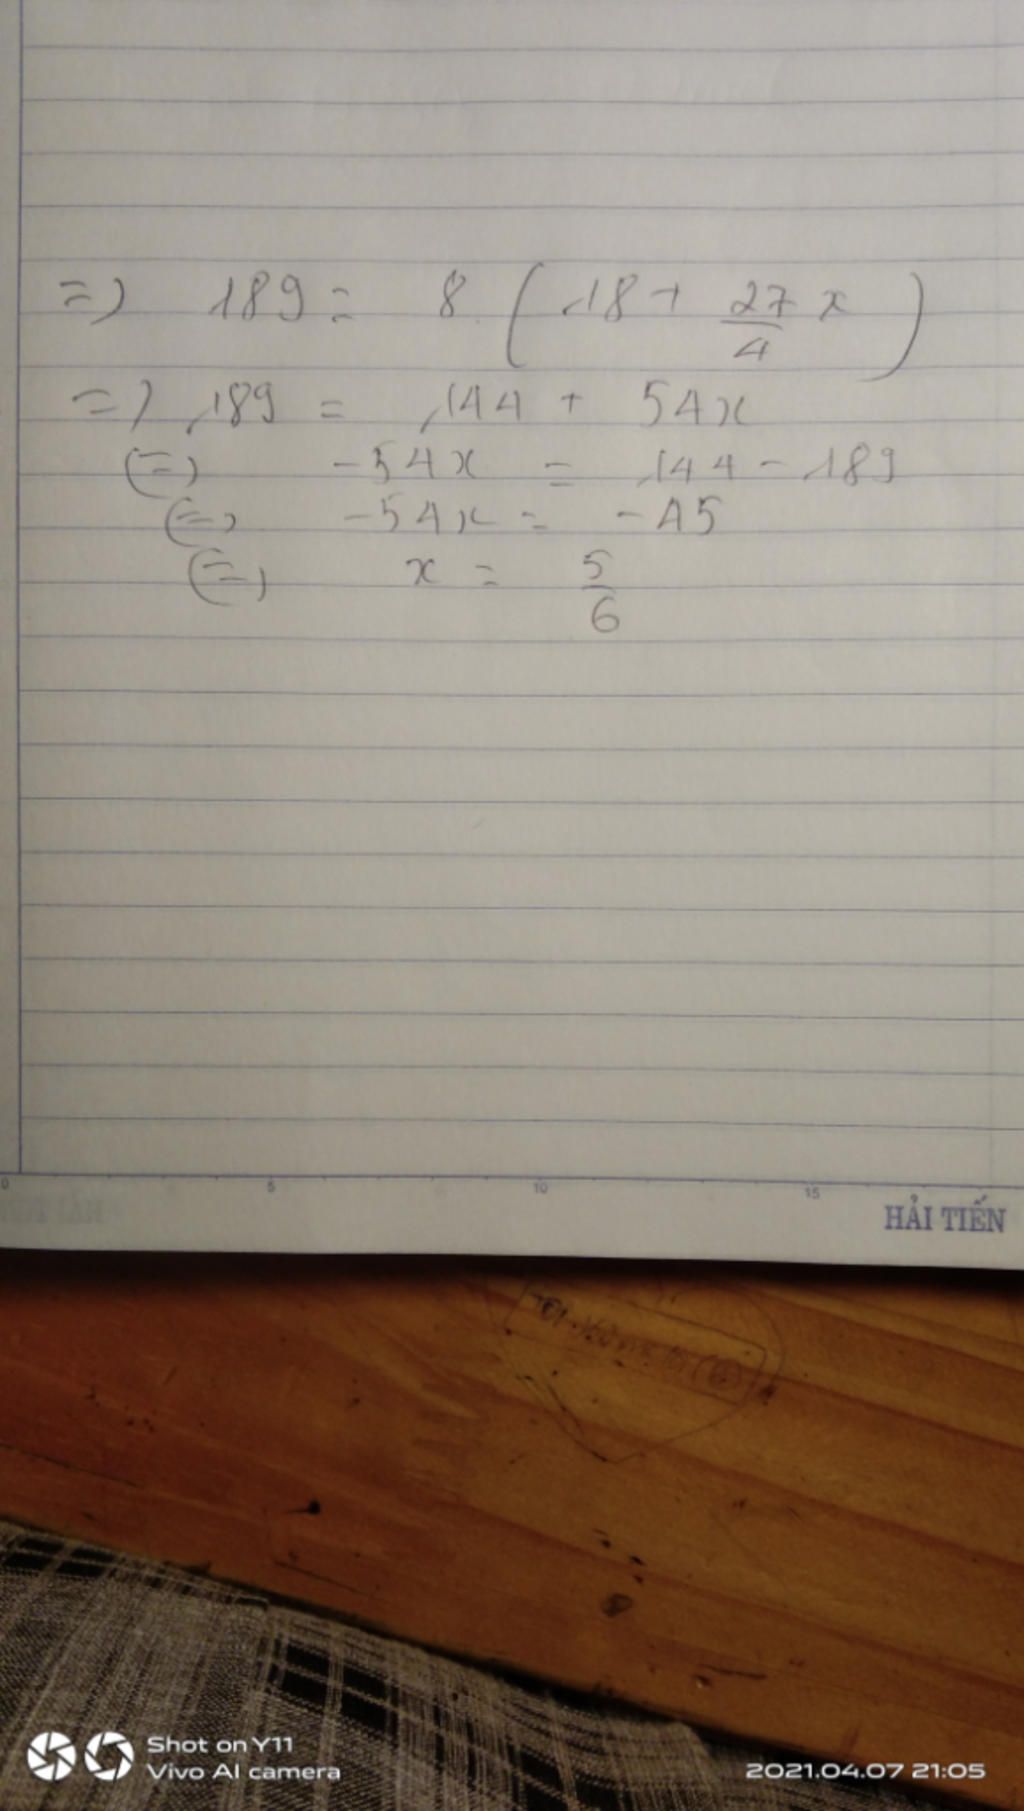 => 189 = 8. ( 18 + 27/4 x )
=> 189 = 144 + 54x
<=> -54x = 144 - 189
<=> -54x = -45
<=> x = 5/6
0 5 10 15
HẢI TIẾN
Shot on Y11
Vivo AI camera
2021.04.07 21:05